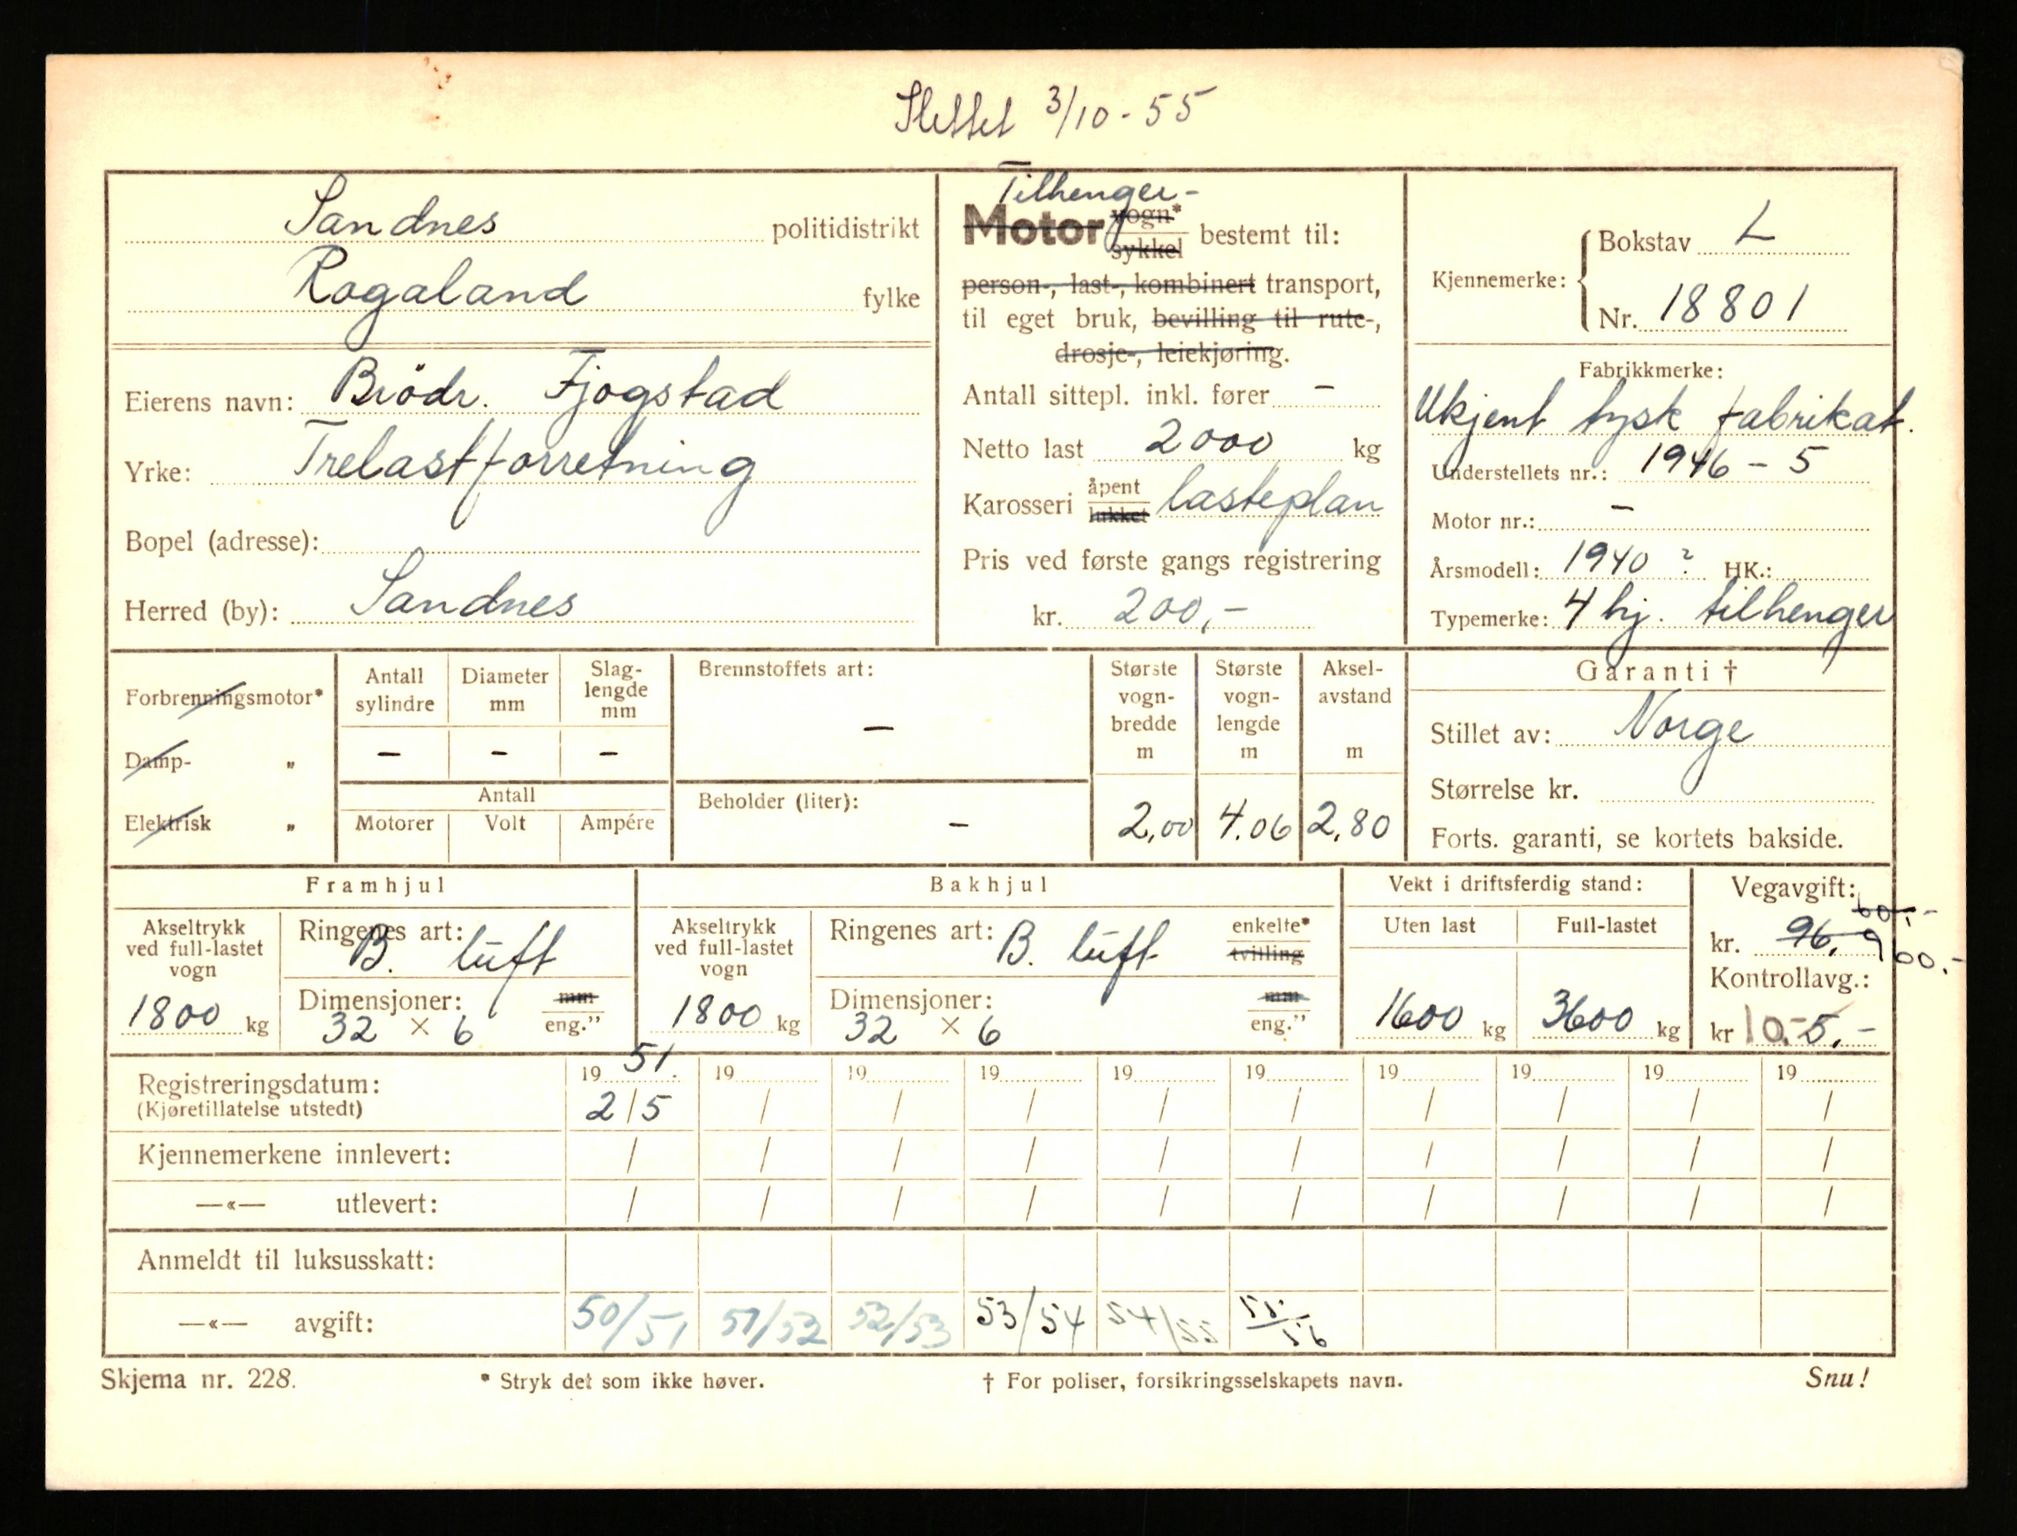 Slettet 3/10-55
Sandnes politidistrikt
Rogaland fylke
Eierens navn: Brödr. Fjogstad
Yrke: Trelastforretning
Bopel (adresse):
Herred (by): Sandnes
Tilhenger-
Motor vogn* sykkel bestemt til:
person-, last-, kombinert transport,
til eget bruk, bevilling til rute-,
drosje-, leiekjøring.
Antall sittepl. inkl. fører –
Netto last 2000 kg
Karosseri åpent lukket lasteplan
Pris ved første gangs registrering
kr. 200,-
Kjennemerke: Bokstav L
Nr. 18801
Fabrikkmerke:
Ukjent tysk fabrikat.
Understellets nr.: 1946 – 5
Motor nr.: –
Årsmodell: 1940 ? HK.:
Typemerke: 4 hj. tilhenger
Forbrenningsmotor*
Damp- „
Elektrisk „
Antall sylindre – Diameter mm – Slag-lengde mm –
Antall
Motorer Volt Ampére
Brennstoffets art: –
Beholder (liter): –
Største vogn-bredde m 2,00
Største vogn-lengde m 4.06
Aksel-avstand m 2,80
Garanti †
Stillet av: Norge
Størrelse kr.
Forts. garanti, se kortets bakside.
Framhjul
Akseltrykk ved full-lastet vogn 1800 kg
Ringenes art: B. luft
Dimensjoner: mm eng."
32 × 6
Bakhjul
Akseltrykk ved full-lastet vogn 1800 kg
Ringenes art: B. luft enkelte* tvilling
Dimensjoner: mm eng."
32 × 6
Vekt i driftsferdig stand:
Uten last 1600 kg
Full-lastet 3600 kg
Vegavgift:
kr. 96,
Kontrollavg.:
kr 10.- 5,-
Registreringsdatum: 19 51. 19 19 19 19 19 19 19 19 19
(Kjøretillatelse utstedt) 2/5 / / / / / / / / /
Kjennemerkene innlevert: / / / / / / / / / /
—«— utlevert: / / / / / / / / / /
Anmeldt til luksusskatt:
—«— avgift: 50/51 51/52 52/53 53/54 54/55 55/56
Skjema nr. 228. * Stryk det som ikke høver. † For poliser, forsikringsselskapets navn. Snu!